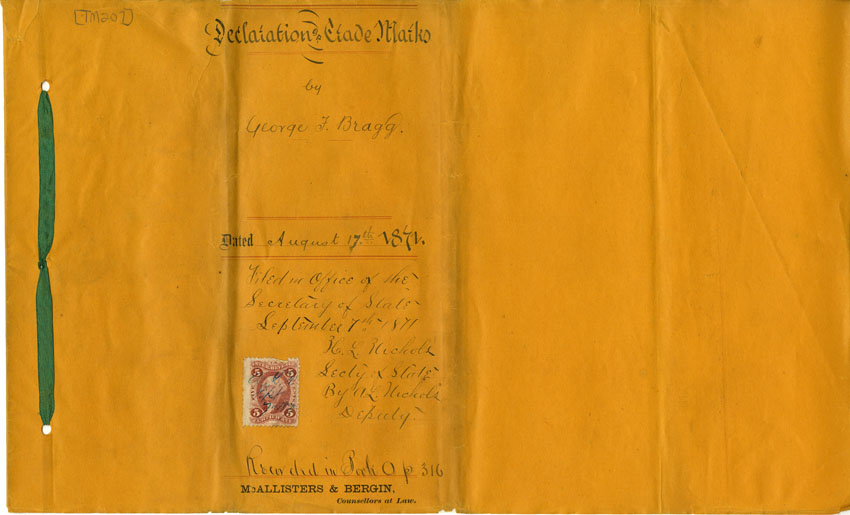 [TM207]
Declaration of Trade Marks
by
George F. Bragg.
Dated August 17th 1871.
Filed in Office of the
Secretary of State
September 7th 1871
H. L. Nichols
Secty of State
By A L Nichols
Deputy.
5 5
5 5
Recorded in Book O p 316
McALLISTERS & BERGIN,
Counsellors at Law.